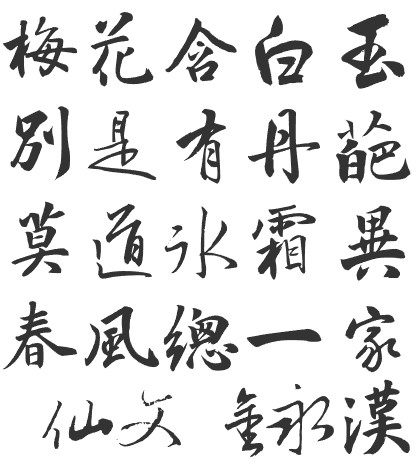 梅花含白玉
別是有丹葩
莫道氷霜異
春風總一家
仙文 金永漢